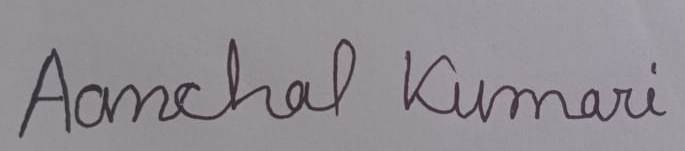 Aanchal Kumari